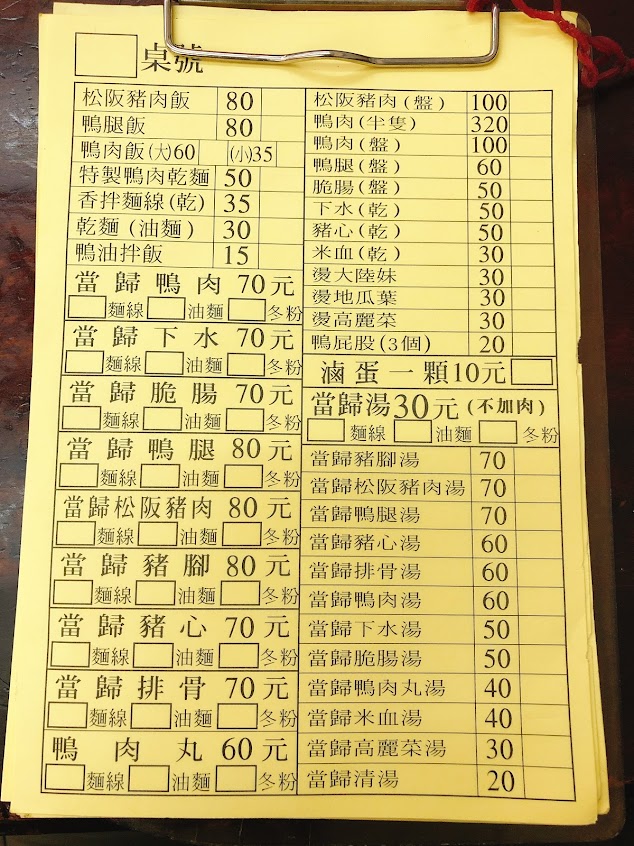 桌號
松阪豬肉飯 80
鴨腿飯 80
鴨肉飯(大)60 (小)35
特製鴨肉乾麵 50
香拌麵線(乾) 35
乾麵(油麵) 30
鴨油拌飯 15
當歸鴨肉 70元
麵線 油麵 冬粉
當歸下水 70元
麵線 油麵 冬粉
當歸脆腸 70元
麵線 油麵 冬粉
當歸鴨腿 80元
麵線 油麵 冬粉
當歸松阪豬肉 80元
麵線 油麵 冬粉
當歸豬腳 80元
麵線 油麵 冬粉
當歸豬心 70元
麵線 油麵 冬粉
當歸排骨 70元
麵線 油麵 冬粉
鴨肉丸 60元
麵線 油麵 冬粉
松阪豬肉(盤) 100
鴨肉(半隻) 320
鴨肉(盤) 100
鴨腿(盤) 60
脆腸(盤) 50
下水(乾) 50
豬心(乾) 50
米血(乾) 30
燙大陸妹 30
燙地瓜葉 30
燙高麗菜 30
鴨屁股(3個) 20
滷蛋一顆10元
當歸湯30元(不加肉)
麵線 油麵 冬粉
當歸豬腳湯 70
當歸松阪豬肉湯 70
當歸鴨腿湯 70
當歸豬心湯 60
當歸排骨湯 60
當歸鴨肉湯 60
當歸下水湯 50
當歸脆腸湯 50
當歸鴨肉丸湯 40
當歸米血湯 40
當歸高麗菜湯 30
當歸清湯 20